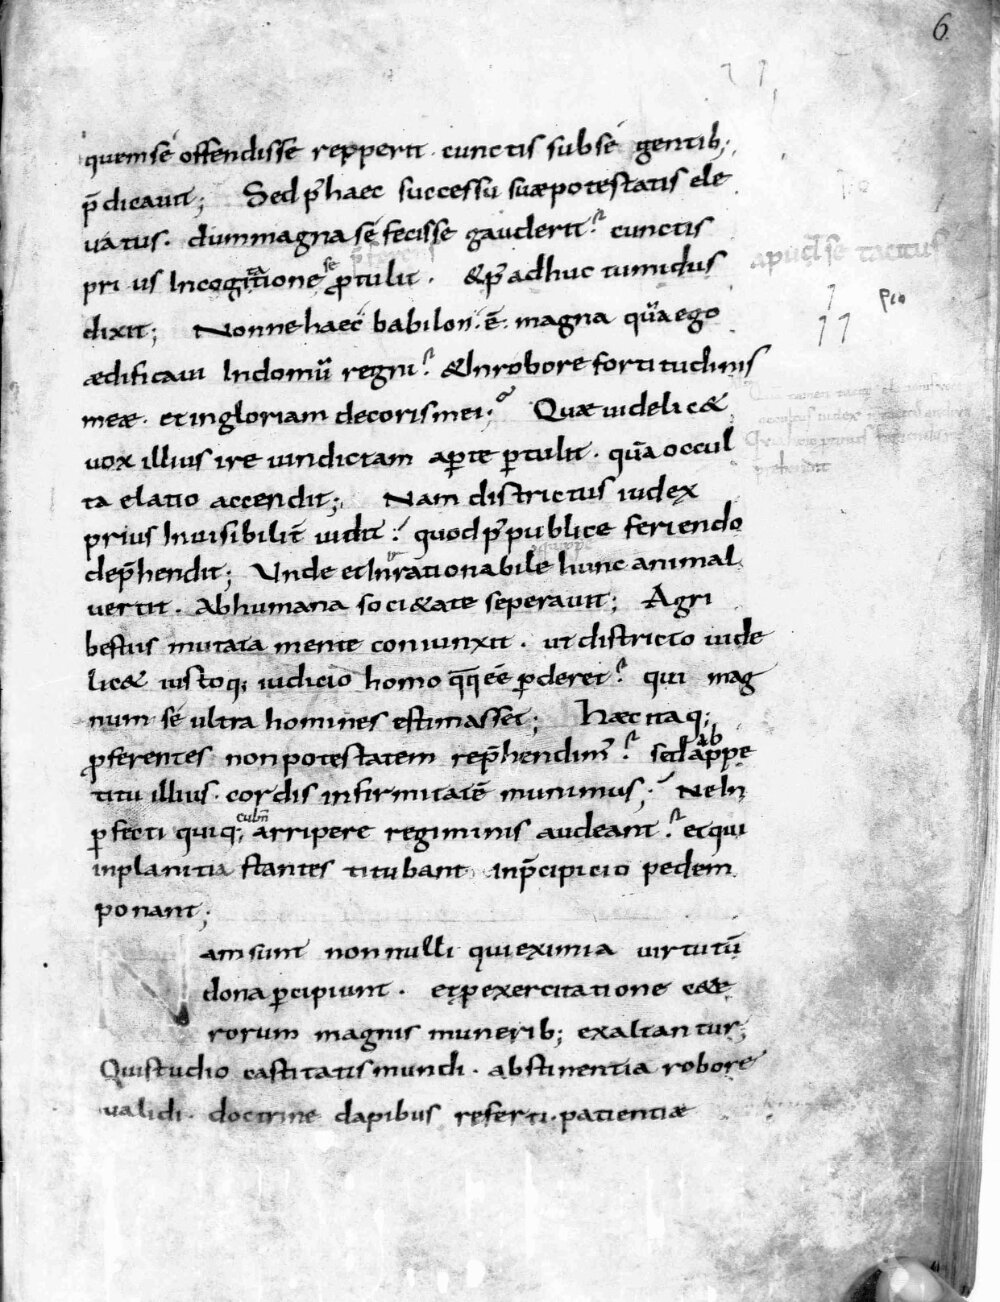 6
quem se offendisse repperit. cunctis sub se gentib;
p̄dicauit; Sed p̕ haec successu suae potestatis ele
uatus. dum magna sé fecisse gauderet. cunctis
prius Incogitatione se ꝓtulit. & p̕ adhuc tumidus
apud se tacitus
dixit; Nonne haec babilon. ē. magna quā ego
ædificaui In domū regni. & In robore fortitudinis
meæ. et in gloriam decoris mei; Quæ uidelic&
uox illius ire uindictam aꝑte ꝑtulit. quā occul
ta elatio accendit; Nam districtus iudex
prius Inuisibilit̄ uidit. quod p̕ publice feriendo
dep̄hendit; Unde et In rationabile hunc animal
uertit. Ab humana soci&ate seperauit; Agri
bestiis mutata mente coniunxit. ut districto uide
lic& iustoq; iudicio homo qq̄ eē ꝑderet. qui mag
num sé ultra homines estimasset; Hæc itaq;
ꝓferentes non potestatem rep̄hendim̕. sed ab appe
titu illius. cordis infirmitatē munimus; Ne In
ꝑfecti quiq; culm̄ arripere regiminis audeant. et qui
in planitia stantes titubant in p̄cipicio pedem
ponant;
Nam sunt non nulli qui eximia uirtutū
dona ꝑcipiunt. et ꝑ exercitatione cæte
rorum magnis munerib; exaltantur;
Qui studio castitatis mundi. abstinentia robore
ualidi. doctrine dapibus referti. patientiæ